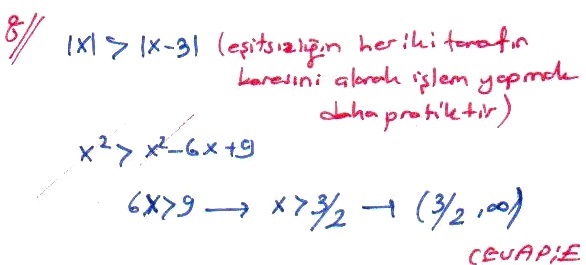 8//
|x| > |x-3| (eşitsizliğin her iki tarafın
karesini alarak işlem yapmak
daha pratiktir)
x² > x²-6x+9
6x>9 → x>3/2 → (3/2, ∞)
CEVAP:E